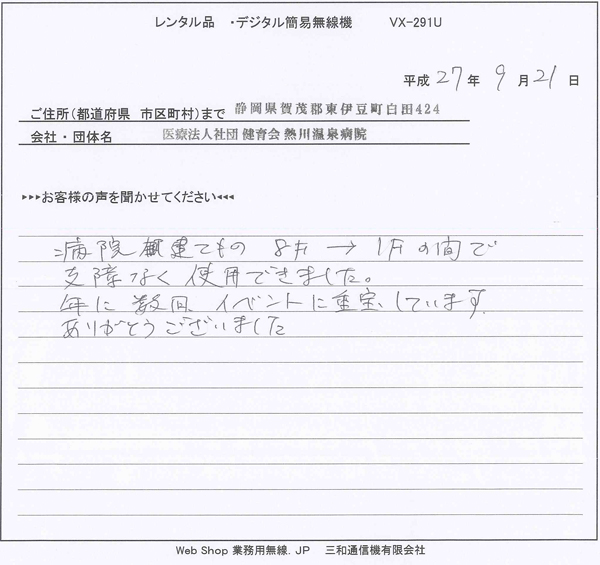 レンタル品 ・デジタル簡易無線機 VX-291U
平成 27 年 9 月 21 日
ご住所(都道府県 市区町村)まで 静岡県賀茂郡東伊豆町白田424
会社・団体名 医療法人社団 健育会 熱川温泉病院
▸▸▸お客様の声を聞かせてください◂◂◂
病院 建てもの 8F → 1Fの間で
支障なく使用できました。
年に数回、イベントに重宝しています。
ありがとうございました
Web Shop 業務用無線.JP 三和通信機有限会社